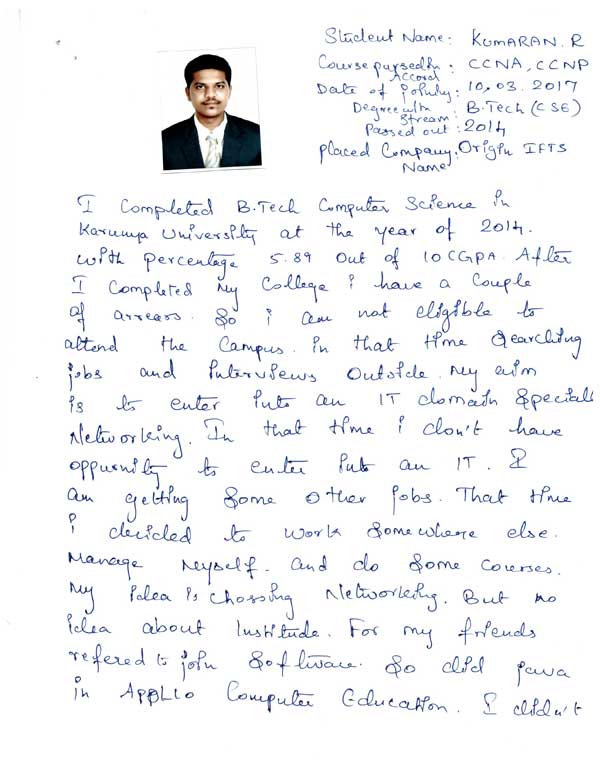 Student Name: KUMARAN. R
Course pursed in : CCNA, CCNP
Accord
Date of : 10.03.2017
Degree with : B.Tech (CSE)
Stream
Passed out : 2014
placed Company : Origin IFTS
Name
I Completed B.Tech Computer Science in
Karunya University at the year of 2014.
with percentage 5.89 out of 10 CGPA. After
I Completed my College i have a Couple
of arrears. So i am not eligible to
attend the Campus. in that time Searching
jobs and interviews outside. My aim
is to enter into an IT domain Speciall
Networking. In that time i don't have
oppurnity to enter into an IT. I
am getting Some other jobs. That time
i decided to work Somewhere else.
Manage Myself. and do Some courses.
My idea is chossing Networking. But no
idea about Institude. For my friends
refered to join Software. So did java
in APPLIO Computer Education. I didn't